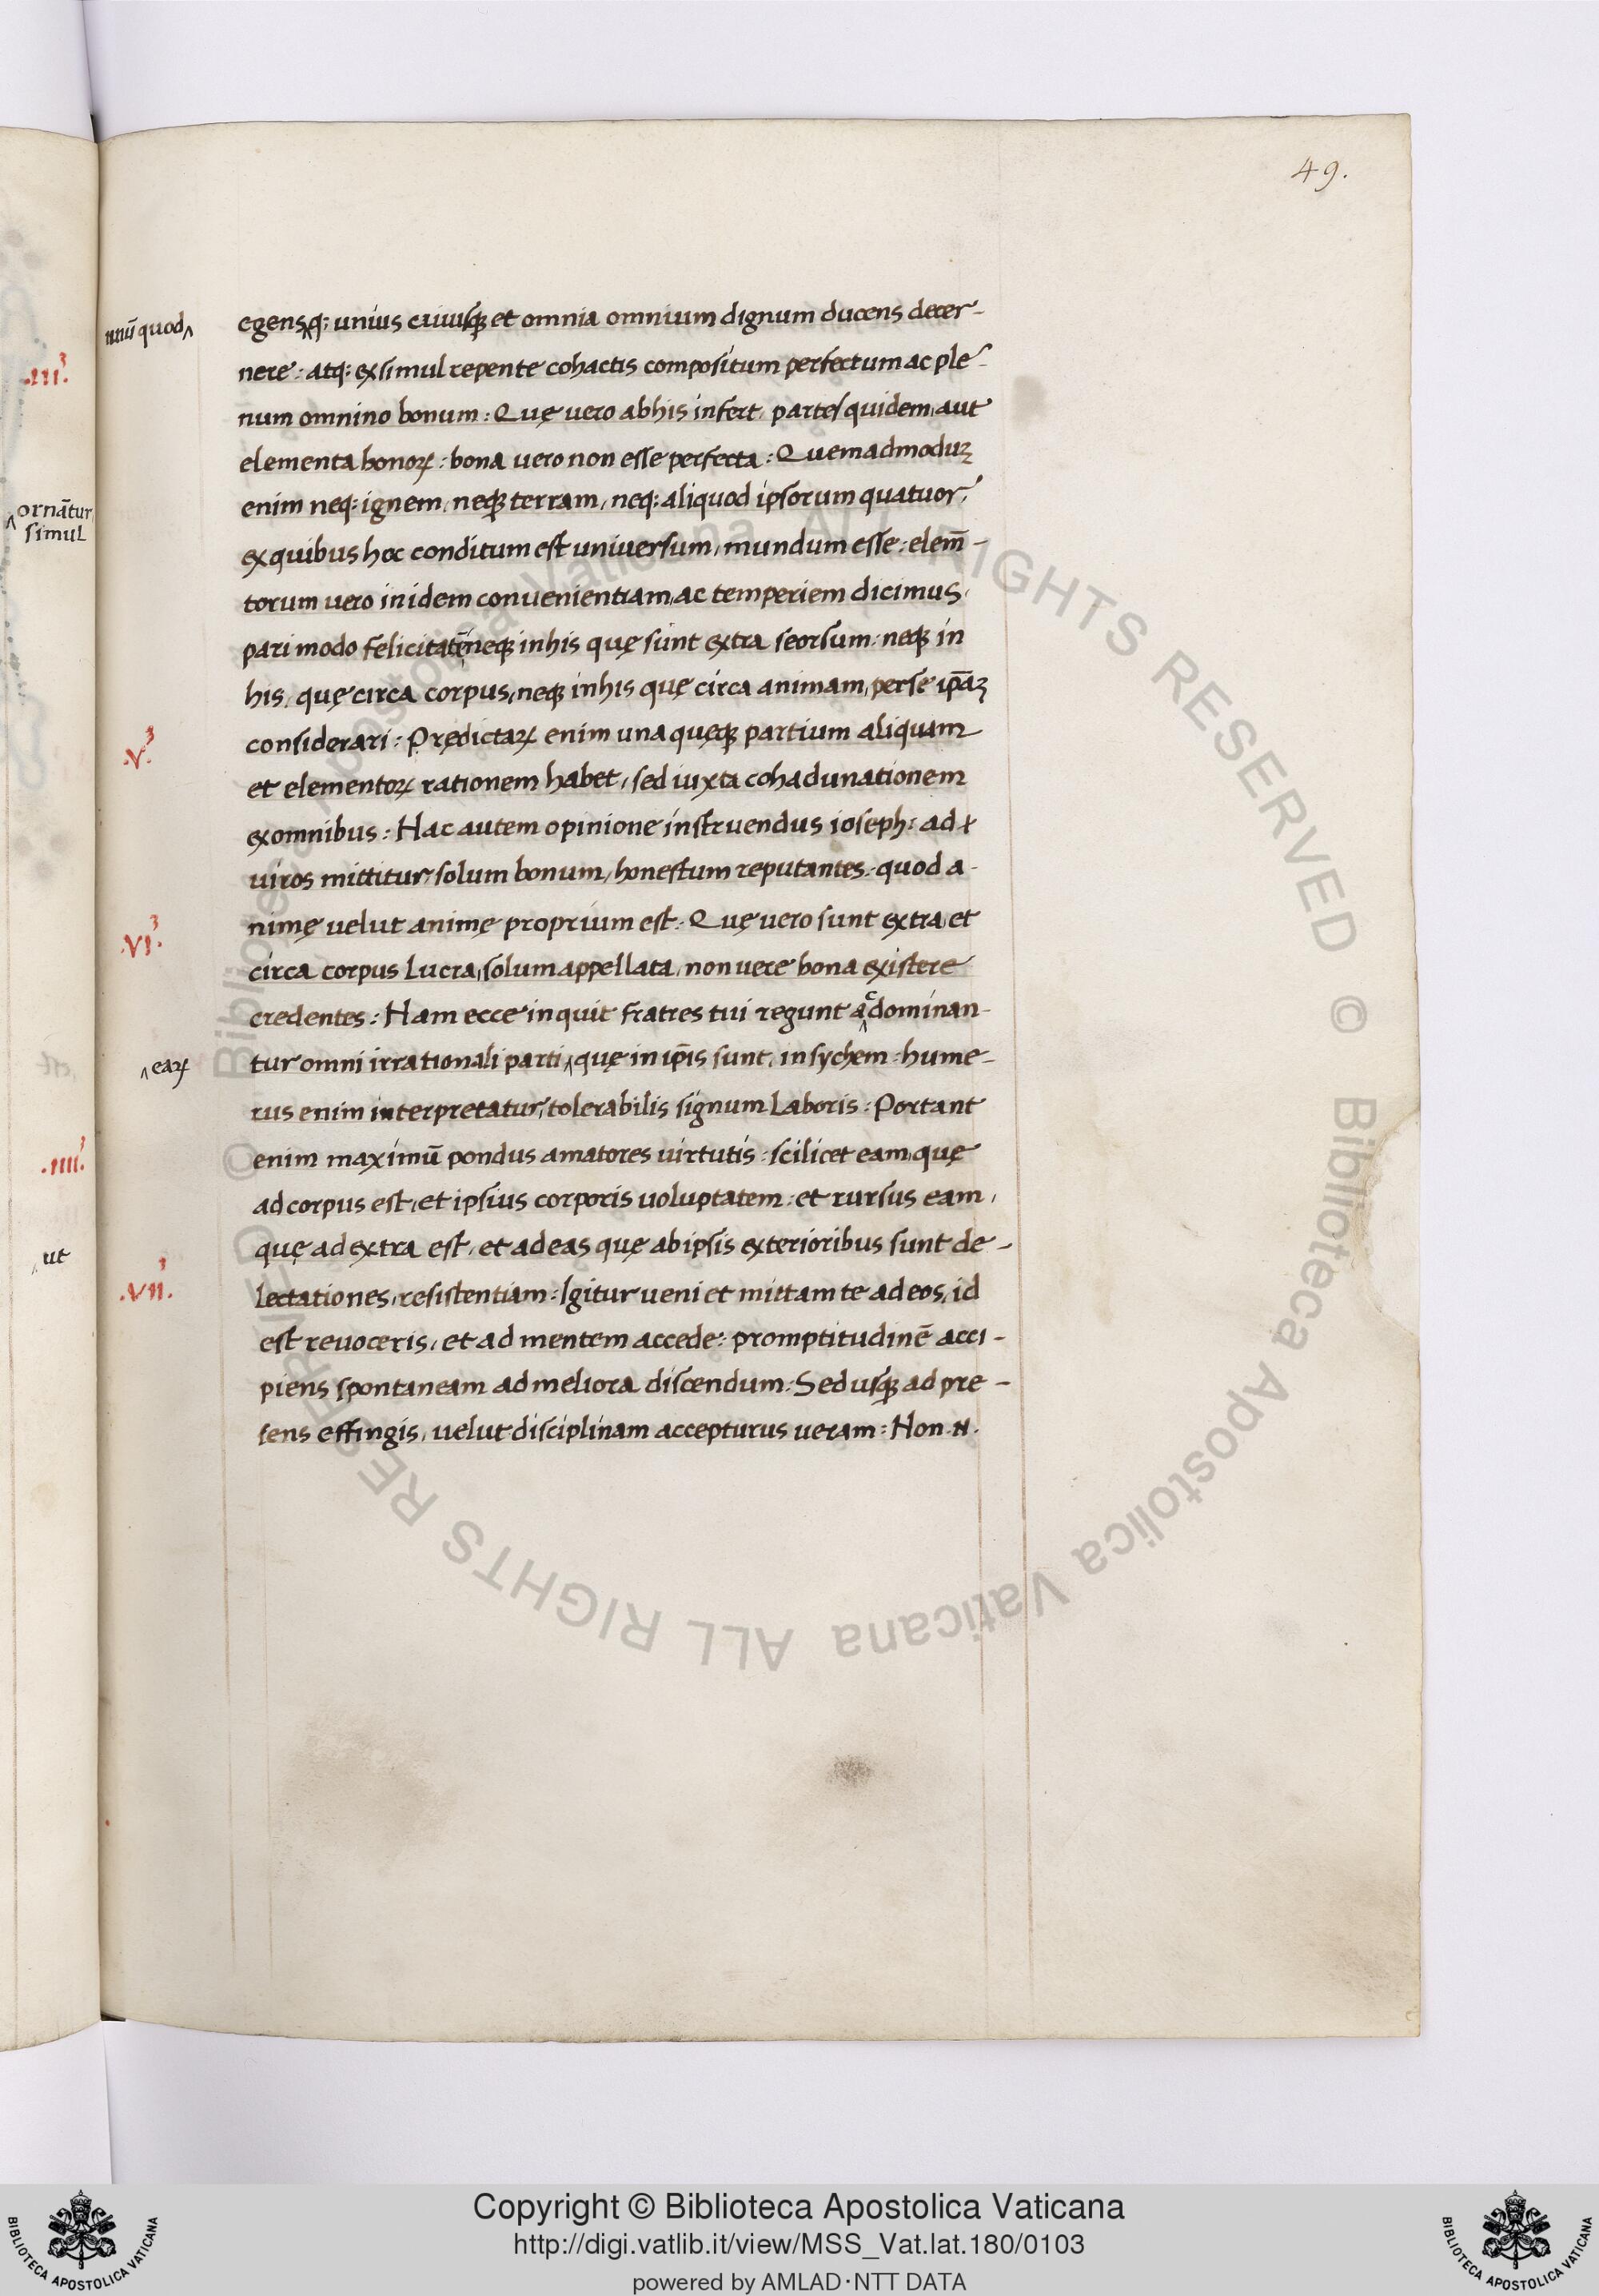 49.
nnū quod
egensq; unius cuiusq; et omnia omnium dignum ducens decer-
.III.
nere: atq: ex simul repente cohactis compositum perfectum ac ple-
num omnino bonum: Quę vero ab his infert, partes quidem, aut
elementa bonoꝝ: bona vero non esse perfecta: Quemadmoduꝫ
enim neq: ignem, neqꝫ terram, neq: aliquod ipsorum quatuor,
ornātur
simul
ex quibus hoc conditum est universum, mundum esse: elem̄-
torum vero in idem convenientiam, ac temperiem dicimus,
pari modo felicitatē, neqꝫ in his quę sunt extra seorsum: neqꝫ in
his, quę circa corpus, neqꝫ in his quę circa animam, per se ip̄aꝫ
.V.
considerari: Prędictaꝝ enim una quęqꝫ partium aliquam
et elementoꝝ rationem habet, sed iuxta cohadunationem
ex omnibus: Hac autem opinione instruendus ioseph: ad
viros mittitur, solum bonum, honestum reputantes: quod a-
.VI.
nimę velut animę proprium est: Quę vero sunt extra, et
circa corpus Lucra, solum appellata, non vere bona existere
credentes: Nam ecce inquit fratres tui regunt ac dominan-
eaꝝ
tur omni irrationali parti, quę in ip̄is sunt, in sychem: hume-
rus enim interpretatur, tolerabilis signum Laboris: Portant
.IIII.
enim maximū pondus amatores virtutis: scilicet eam, quę
ad corpus est, et ipsius corporis voluptatem: et rursus eam,
ut
quę ad extra est, et ad eas quę ab ipsis exterioribus sunt de-
.VII.
lectationes, resistentiam: Igitur veni et mittam te ad eos, id
est revoceris, et ad mentem accede: promptitudinē acci-
piens spontaneam ad meliora discendum: Sed usqꝫ ad pre-
sens effingis, velut disciplinam accepturus veram: Non .N.
© Biblioteca Apostolica Vaticana ALL RIGHTS RESERVED © Biblioteca Apostolica Vaticana ALL RIGHTS RESERVED
Copyright © Biblioteca Apostolica Vaticana
http://digi.vatlib.it/view/MSS_Vat.lat.180/0103
powered by AMLAD·NTT DATA
BIBLIOTECA APOSTOLICA VATICANA
BIBLIOTECA APOSTOLICA VATICANA